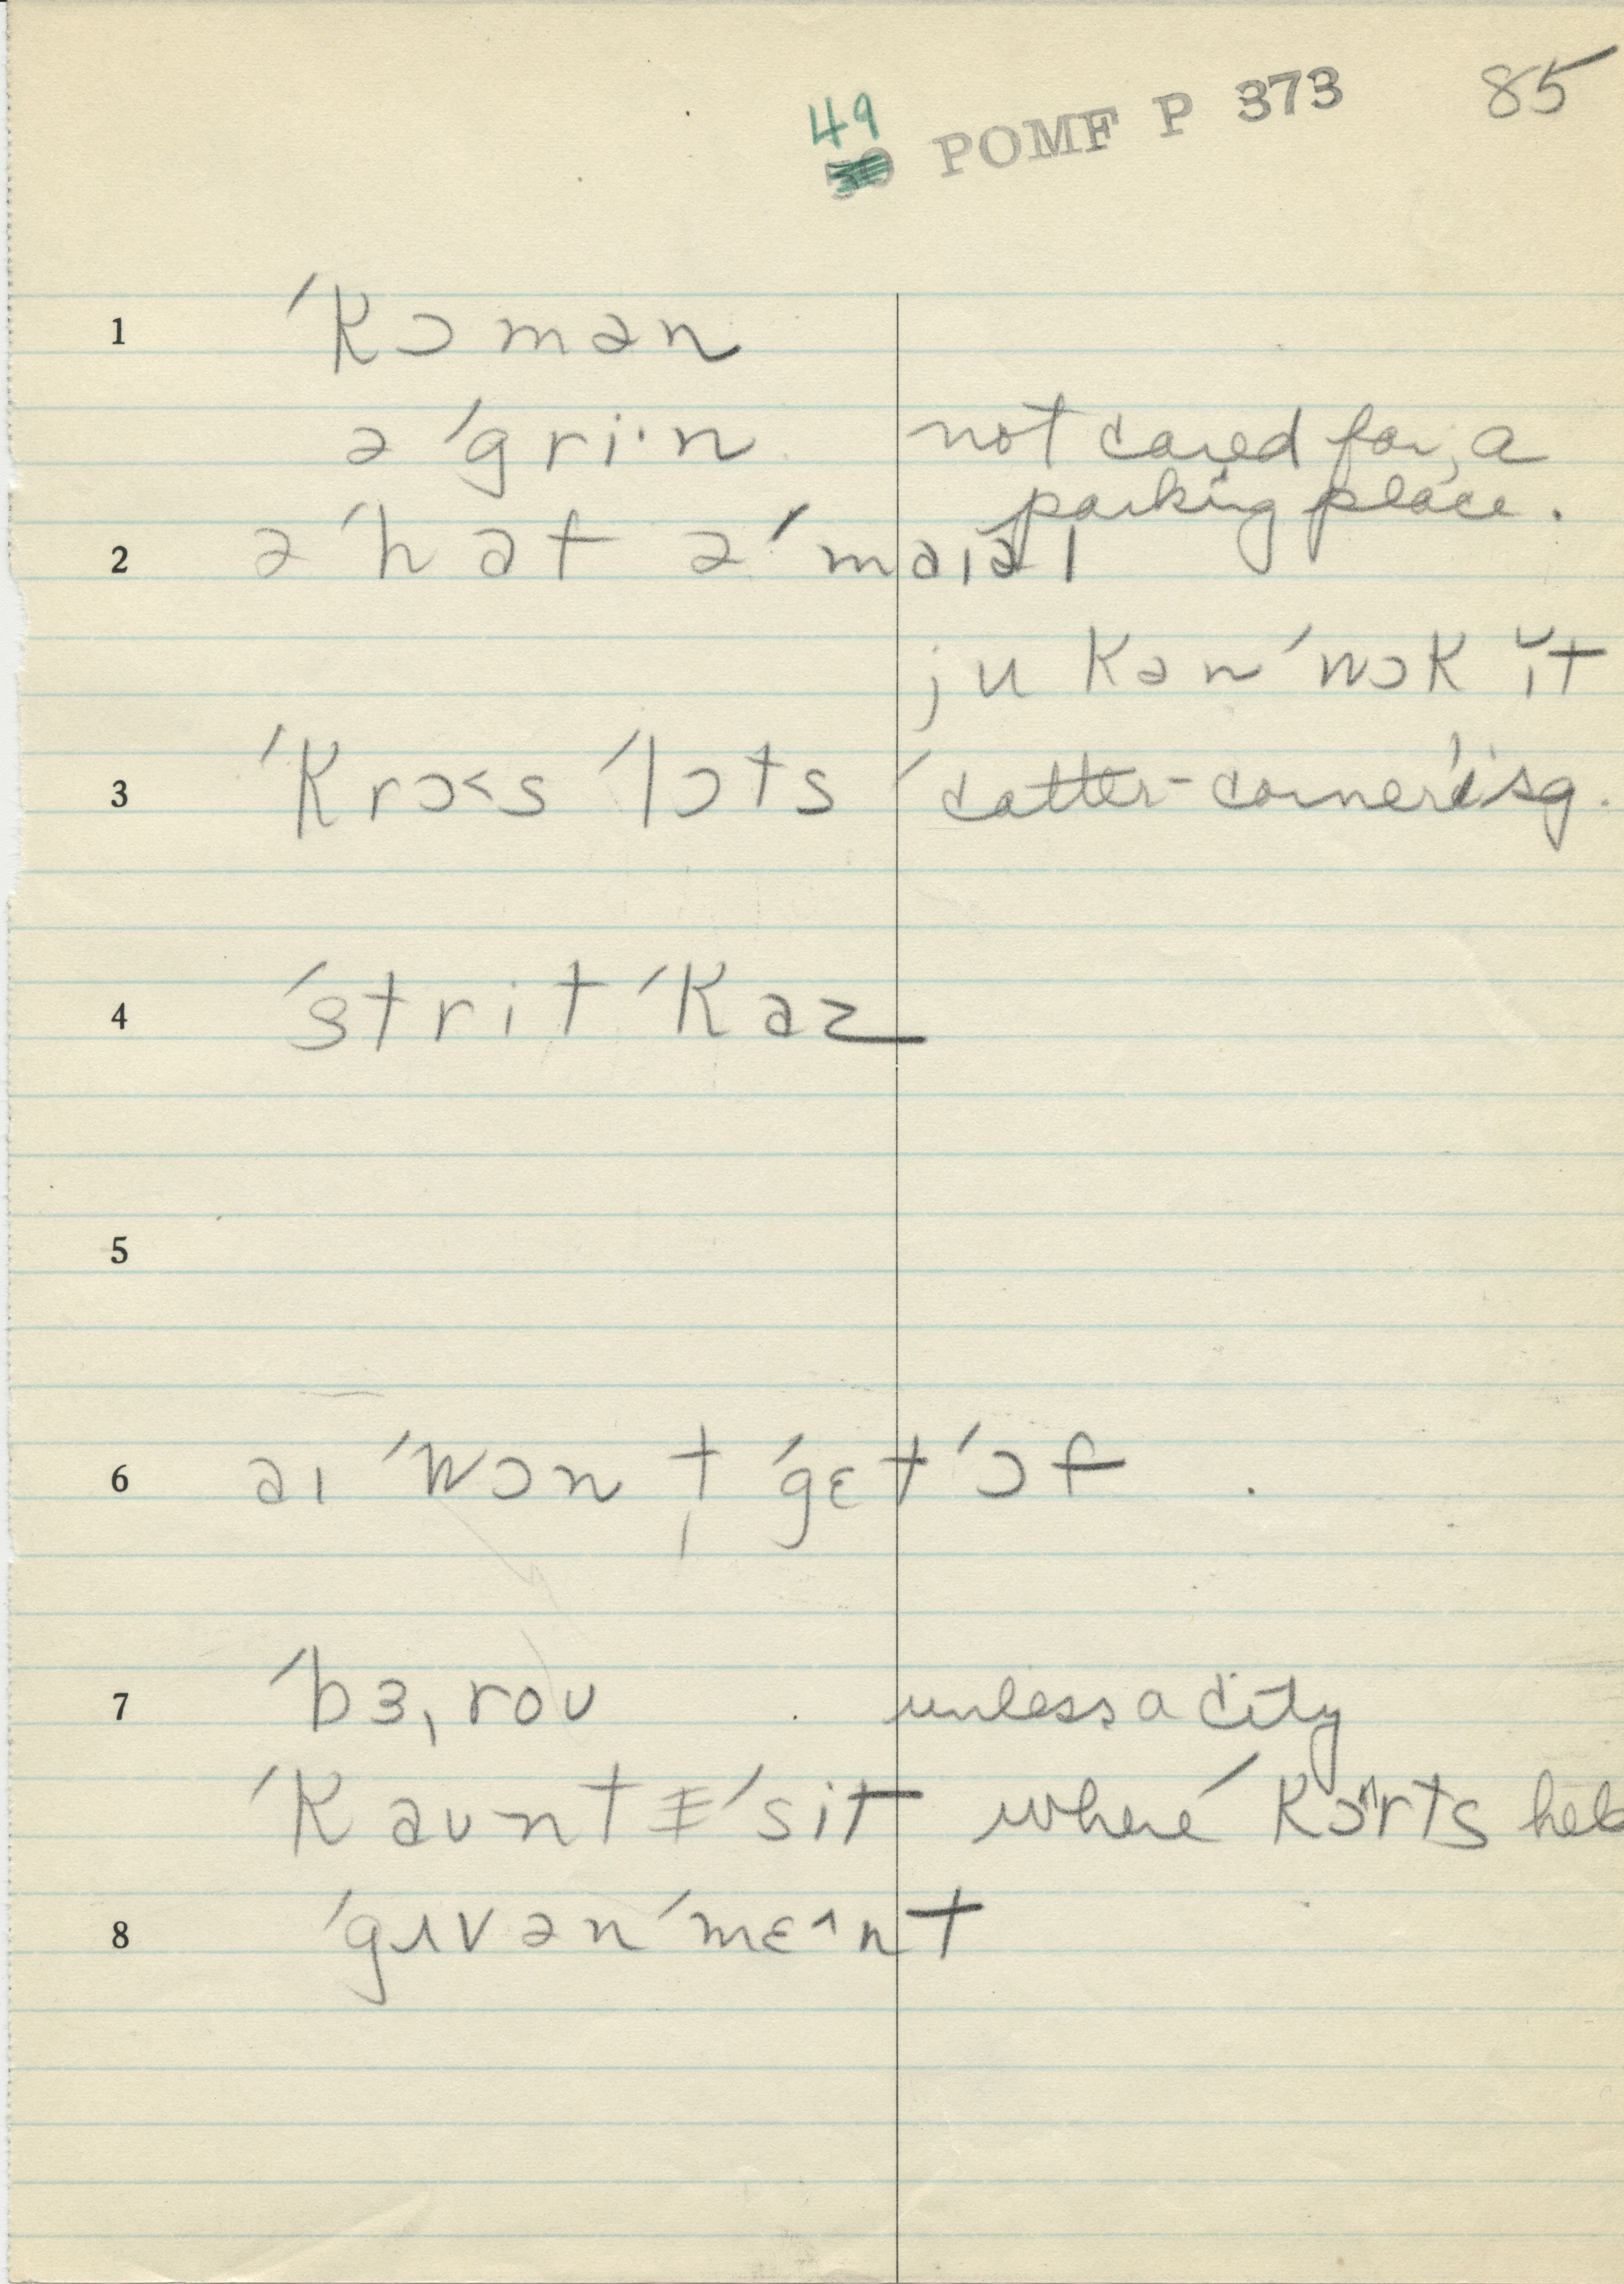 49 POMF P 373 85
1 ˈkɔmən
ə ˈgri·n not cared for, a
parking place.
2 ə ˈhaf ə ˈmaɪəl
ju kən ˈwɔk ɪ̆t
3 ˈkrɔ˂s ˈlɔts ˈcatter-corner'isg.
4 ˈstrit ˈkaz
5
6 aɪ ˈwɔnt̩ ˈgɛt ˈɔf
7 ˈbɜˌroʊ unless a city
ˈkaʊntɪ ˈsit where kɔ^rts held
8 ˈgʌvənˈmɛ^nt